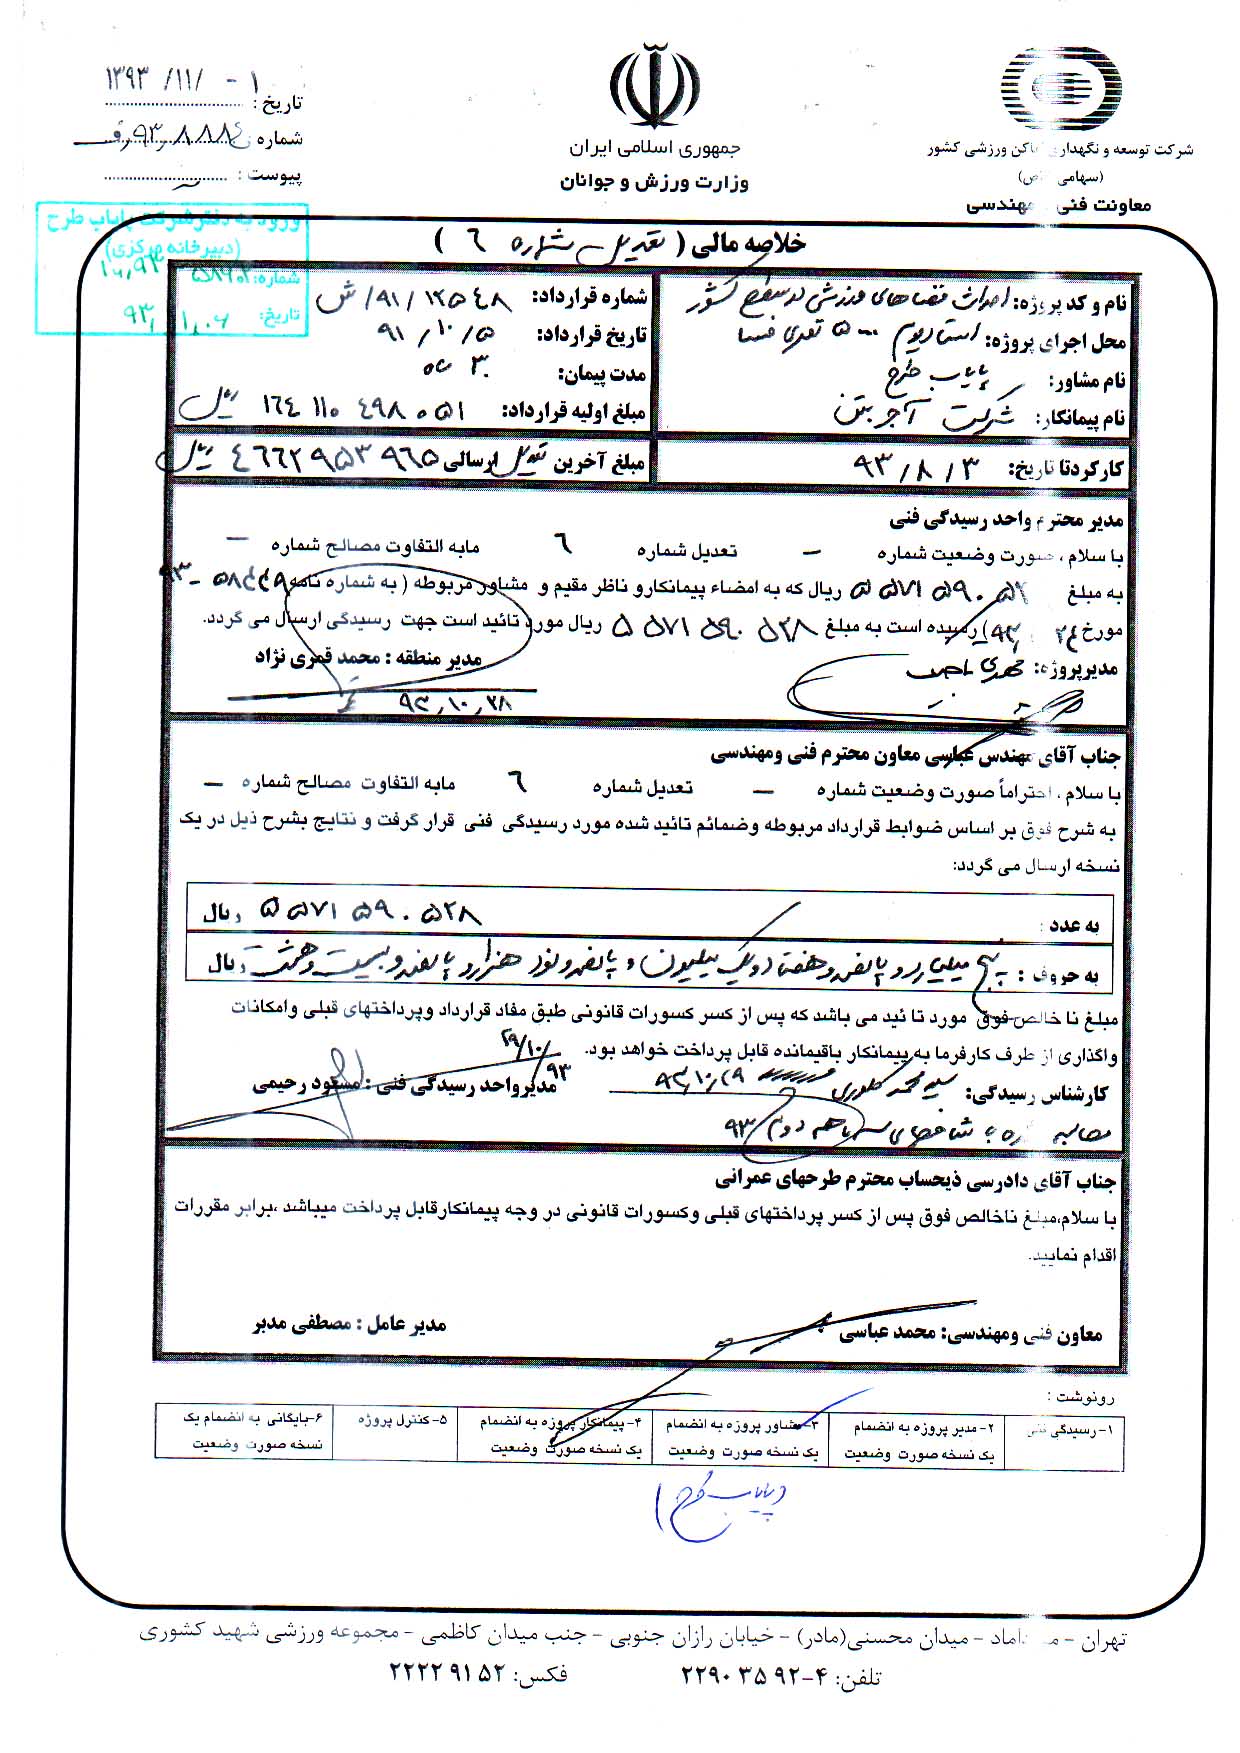 شرکت توسعه و نگهداری اماکن ورزشی کشور
(سهامی خاص)
معاونت فنی و مهندسی
جمهوری اسلامی ایران
وزارت ورزش و جوانان
تاریخ : ۱۳۹۳/۱۱/۰۱
شماره
پیوست :
ورود به دفتر شرکت پایاب طرح
(دبیرخانه مرکزی)
شماره:
تاریخ:
خلاصه مالی ( تعدیل شماره ۶ )
نام و کد پروژه: احداث فضاهای ورزشی در سطح کشور
محل اجرای پروژه: استادیوم ۵۰۰۰ نفری فسا
نام مشاور: پایاب طرح
نام پیمانکار: شرکت آجر بتن
شماره قرارداد: ۱۲۵۴۸/۹۱/ش
تاریخ قرارداد: ۹۱/۱۰/۵
مدت پیمان: ۳۰ ماه
مبلغ اولیه قرارداد: ۱۶۴ ۱۱۰ ۴۹۸ ۰۵۱ ریال
کارکرد تا تاریخ: ۹۳/۸/۳
مبلغ آخرین تعدیل ارسالی ۴۶۶۲ ۹۵۳ ۹۶۵ ریال
مدیر محترم واحد رسیدگی فنی
با سلام ، صورت وضعیت شماره – تعدیل شماره ۶ مابه التفاوت مصالح شماره –
به مبلغ ۵ ۵۷۱ ۵۹۰ ۵۲ ریال که به امضاء پیمانکار و ناظر مقیم و مشاور مربوطه ( به شماره نامه
مورخ رسیده است به مبلغ ۵ ۵۷۱ ۵۹۰ ۵۲۸ ریال مورد تائید است جهت رسیدگی ارسال می گردد.
مدیر پروژه: مدیر منطقه : محمد قمری نژاد
۹۳,۱۰,۲۸
جناب آقای مهندس عباسی معاون محترم فنی ومهندسی
با سلام ، احتراماً صورت وضعیت شماره – تعدیل شماره ۶ مابه التفاوت مصالح شماره –
به شرح فوق بر اساس ضوابط قرارداد مربوطه وضمائم تائید شده مورد رسیدگی فنی قرار گرفت و نتایج بشرح ذیل در یک
نسخه ارسال می گردد:
به عدد : ۵ ۵۷۱ ۵۹۰ ۵۲۸ ریال
به حروف : پنج میلیارد و پانصد و هفتاد و یک میلیون و پانصد و نود هزار و پانصد و بیست و هشت ریال
مبلغ نا خالص فوق مورد تا ئید می باشد که پس از کسر کسورات قانونی طبق مفاد قرارداد وپرداختهای قبلی وامکانات
واگذاری از طرف کارفرما به پیمانکار باقیمانده قابل پرداخت خواهد بود.
کارشناس رسیدگی: ۹۳,۱۰,۲۹ مدیر واحد رسیدگی فنی : مسعود رحیمی
محاسبه شده با شاخصهای سه ماهه دوم ۹۳
جناب آقای دادرسی ذیحساب محترم طرحهای عمرانی
با سلام،مبلغ ناخالص فوق پس از کسر پرداختهای قبلی وکسورات قانونی در وجه پیمانکار قابل پرداخت میباشد ،برابر مقررات
اقدام نمایید.
معاون فنی ومهندسی: محمد عباسی مدیر عامل : مصطفی مدبر
رونوشت :
۱-رسیدگی فنی
۲-مدیر پروژه به انضمام یک نسخه صورت وضعیت
۳-مشاور پروژه به انضمام یک نسخه صورت وضعیت
۴-پیمانکار پروژه به انضمام یک نسخه صورت وضعیت
۵-کنترل پروژه
۶-بایگانی به انضمام یک نسخه صورت وضعیت
(پایاب طرح)
تهران - میرداماد - میدان محسنی(مادر) - خیابان رازان جنوبی - جنب میدان کاظمی - مجموعه ورزشی شهید کشوری
تلفن: ۴-۲۲۹۰۳۵۹۲ فکس: ۲۲۲۲۹۱۵۲